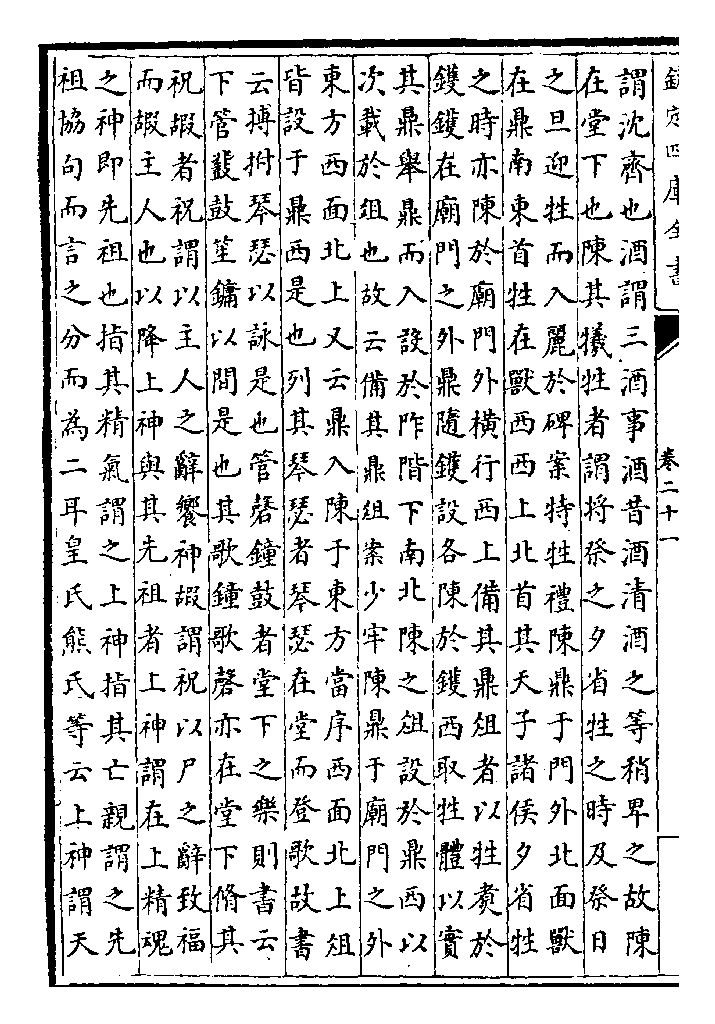 欽定四庫全書
卷二十一
謂沈齊也酒謂三酒事酒昔酒清酒之等稍卑之故陳
在堂下也陳其犧牲者謂將祭之夕省牲之時及祭日
之旦迎牲而入麗於碑案特牲禮陳鼎于門外北面獸
在鼎南東首牲在獸西西上北首其天子諸侯夕省牲
之時亦陳於廟門外橫行西上備其鼎俎者以牲煮於
鑊鑊在廟門之外鼎隨鑊設各陳於鑊西取牲體以實
其鼎舉鼎而入設於阼階下南北陳之俎設於鼎西以
次載於俎也故云備其鼎俎案少牢陳鼎于廟門之外
東方西面北上又云鼎入陳于東方當序西面北上俎
皆設于鼎西是也列其琴瑟者琴瑟在堂而登歌故書
云搏拊琴瑟以詠是也管磬鐘鼓者堂下之樂則書云
下管鼗鼓笙鏞以間是也其歌鐘歌磬亦在堂下脩其
祝嘏者祝謂以主人之辭饗神嘏謂祝以尸之辭致福
而嘏主人也以降上神與其先祖者上神謂在上精魂
之神即先祖也指其精氣謂之上神指其亡親謂之先
祖協句而言之分而為二耳皇氏熊氏等云上神謂天